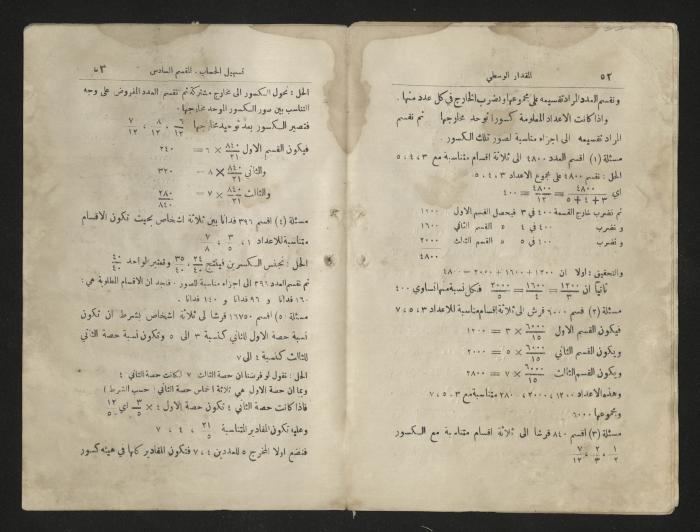 ٥٢ المقدار الوسطي
ونقسم العدد المراد تقسيمه على مجموعها ونضرب الخارج في كل عدد منها .
واذا كانت الاعداد المعلومة كسورا توحد مخارجها ثم نقسم
المراد تقسيمه الى اجزاء مناسبة لصور تلك الكسور .
مسئلة (١) اقسم العدد ٤٨٠٠ الى ثلاثة اقسام متناسبة مع ٣ ، ٤ ، ٥
الحل : نقسم ٤٨٠٠ على مجموع الاعداد ٣ ، ٤ ، ٥
اي ٤٨٠٠/(٣ + ٤ + ٥) = ٤٨٠٠/١٢ = ٤٠٠
ثم نضرب خارج القسمة ٤٠٠ في ٣ فيحصل القسم الاول ١٢٠٠
و نضرب ٤٠٠ في ٤ القسم الثاني ١٦٠٠
و نضرب ٤٠٠ في ٥ القسم الثالث ٢٠٠٠
٤٨٠٠
والتحقيق : اولا ان ١٢٠٠ + ١٦٠٠ + ٢٠٠٠ = ٤٨٠٠
ثانيا ان ١٢٠٠/٣ = ١٦٠٠/٤ = ٢٠٠٠/٥ فكل نسبة منها تساوي ٤٠٠
مسئلة (٢) قسم ٦٠٠٠ قرش الى ثلاثة اقسام مناسبة للاعداد ٣ ، ٥ ، ٧
فيكون القسم الاول ٦٠٠٠/١٥ × ٣ = ١٢٠٠
ويكون القسم الثاني ٦٠٠٠/١٥ × ٥ = ٢٠٠٠
ويكون القسم الثالث ٦٠٠٠/١٥ × ٧ = ٢٨٠٠
وهذه الاعداد ١٢٠٠ ، ٢٠٠٠ ، ٢٨٠٠ متناسبة مع ٣ ، ٥ ، ٧
ومجموعها ٦٠٠٠
مسئلة (٣) اقسم ٨٤٠ قرشا الى ثلاثة اقسام متناسبة مع الكسور
١/٢ ، ٢/٣ ، ٧/١٢
تسهيل الحساب . القسم السادس ٥٣
الحل : نحول الكسور الى مخارج مشتركة ثم نقسم العدد المفروض على وجه
التناسب بين صور الكسور الموحد مخارجها .
فتصير الكسور بعد توحيد مخارجها ٦/١٢ ، ٨/١٢ ، ٧/١٢
فيكون القسم الاول ٨٤٠/٢١ × ٦ = ٢٤٠
والثاني ٨٤٠/٢١ × ٨ = ٣٢٠
والثالث ٨٤٠/٢١ × ٧ = ٢٨٠
٨٤٠
مسئلة (٤) اقسم ٣٩٦ فدانا بين ثلاثة اشخاص بحيث تكون الاقسام
متناسبة للاعداد ١ ، ٣/٥ ، ٧/٨
الحل : نجنس الكسرين فينتج ٢٤/٤٠ ، ٣٥/٤٠ ونعتبر الواحد ٤٠/٤٠
ثم نقسم العدد ٣٩٦ الى اجزاء مناسبة للصور . فنجد ان الاقسام المطلوبة هي :
١٦٠ فدانا و ٩٦ فدانا و ١٤٠ فدانا .
مسئلة (٥) اقسم ١٦٧٥٠ قرشا الى ثلاثة اشخاص بشرط ان تكون
نسبة حصة الاول للثاني كنسبة ٣ الى ٥ وتكون نسبة حصة الثاني
للثالث كنسبة ٤ الى ٧
الحل : نقول لو فرضنا ان حصة الثالث ٧ لكانت حصة الثاني ٤
وبما ان حصة الاول هي ثلاثة اخماس حصة الثاني (حسب الشرط)
فاذا كانت حصة الثاني ٤ تكون حصة الاول ٤ × ٣/٥ اي ١٢/٥
وعليه تكون المقادير المتناسبة ٢١/٥ ، ٤ ، ٧
فنضع اولا المخرج ٥ للعددين ٤ ، ٧ فتكون المقادير كلها في هيئة كسور